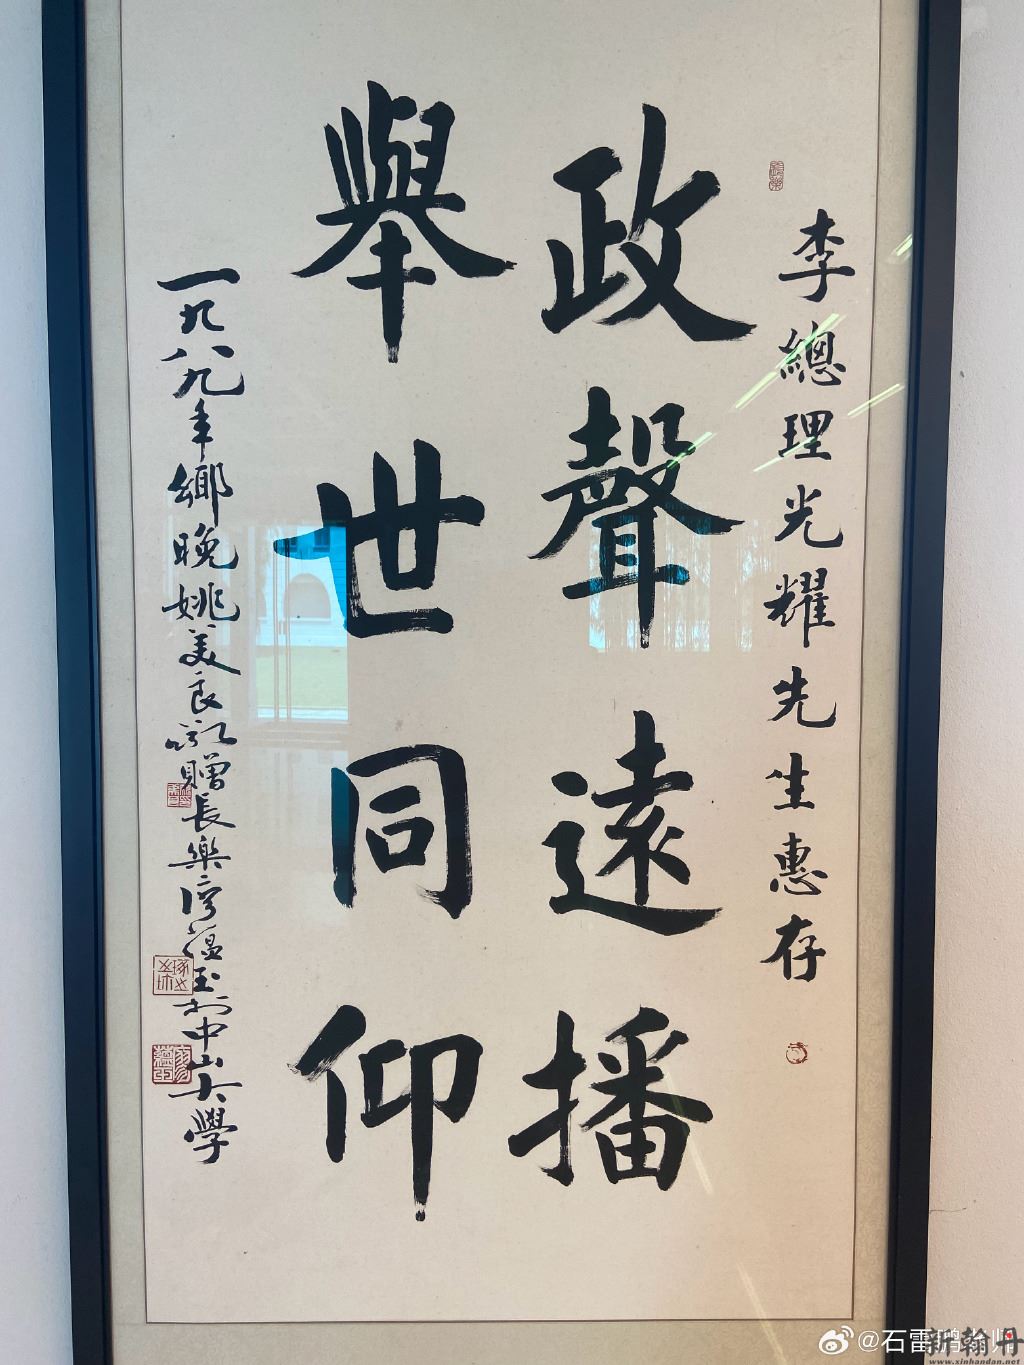 李總理光耀先生惠存
政聲遠播
舉世同仰
一九八九年鄉晚姚美良敬贈長樂湾蘊玉書於中山大學
@石雷鹏
新翰丹
www.xinhandan.net